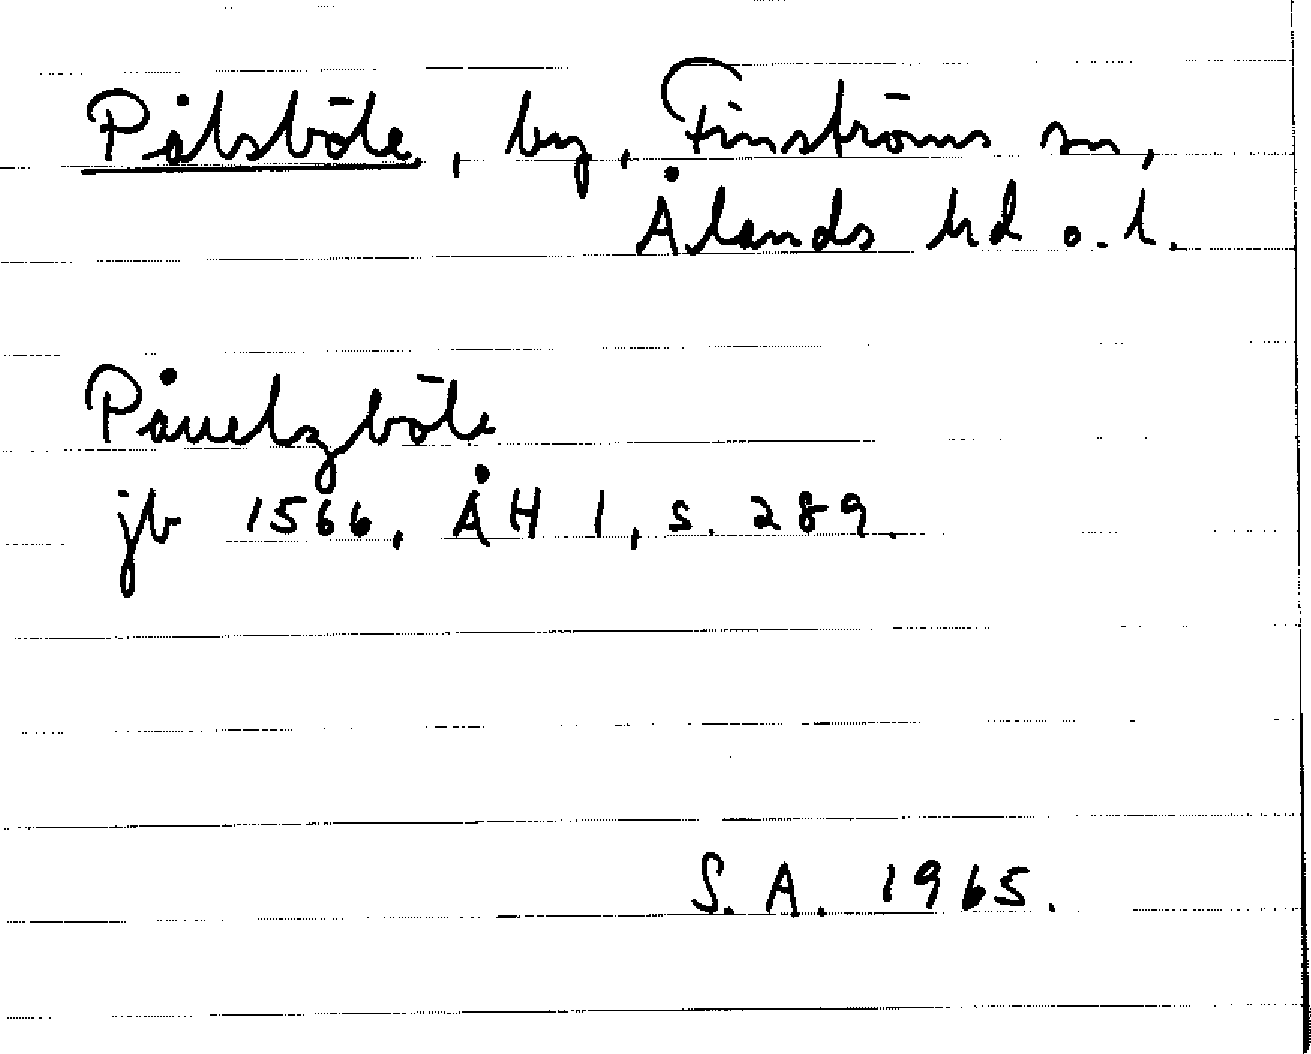 Pålsböle, by, Finströms sn,
Ålands hd o. l.
Påuelzböle
jb 1566, ÅH 1, s. 289.
S. A. 1965.